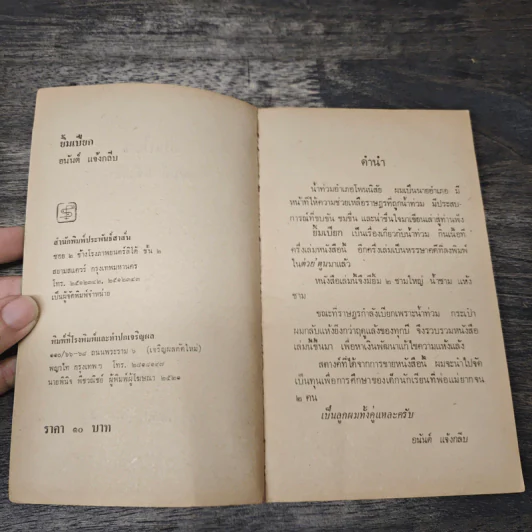 ยิ้มเปียก
อนันต์ แจ้งกลีบ
สำนักพิมพ์ประพันธ์สาส์น
ซอย ๒ ข้างโรงภาพยนตร์สิริ ชั้น ๒
สยามสแควร์ กรุงเทพมหานคร
โทร.
เป็นผู้จัดพิมพ์จำหน่าย
พิมพ์ที่โรงพิมพ์และทำปกเจริญผล
ถนนพระราม ๖ (เจริญผลตัดใหม่)
พญาไท กรุงเทพฯ โทร.
นายพินิจ ผู้พิมพ์ผู้โฆษณา ๒๕๒๑
ราคา ๑๐ บาท
คำนำ
น้ำท่วมอำเภอโพนพิสัย ผมเป็นนายอำเภอ มี
หน้าที่ให้ความช่วยเหลือราษฎรที่ถูกน้ำท่วม มีประสบ-
การณ์ที่ขบขัน ขมขื่น และน่าชื่นใจมาเขียนเล่าสู่ท่านฟัง
ยิ้มเปียก เป็นเรื่องเกี่ยวกับน้ำท่วม กินเนื้อที่
ครึ่งเล่มหนังสือนี้ อีกครึ่งเล่มเป็นหรรษาคดีที่ลงพิมพ์
ใน มาแล้ว
หนังสือเล่มนี้จึงมียิ้ม ๒ ชามใหญ่ น้ำชาม แห้ง
ชาม
ขณะที่ราษฎรกำลังเปียกเพราะน้ำท่วม กระเป๋า
ผมกลับแห้งยิ่งกว่าฤดูแล้งของทุกปี จึงรวบรวมหนังสือ
เล่มนี้ขึ้นมา เพื่อหาเงินพัฒนาแก้ไขความแห้งแล้ง
สตางค์ที่ได้จากการขายหนังสือนี้ ผมจะนำไปจัด
เป็นทุนเพื่อการศึกษาของเด็กนักเรียนที่พ่อแม่ยากจน
๒ คน
เป็นลูกผมทั้งคู่แหละครับ
อนันต์ แจ้งกลีบ